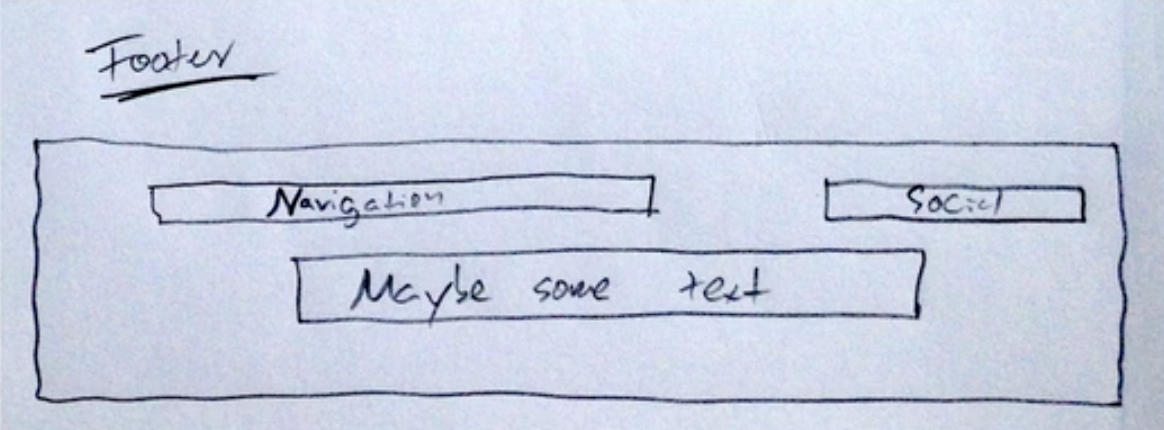 Footer
Navigation Social
Maybe some text